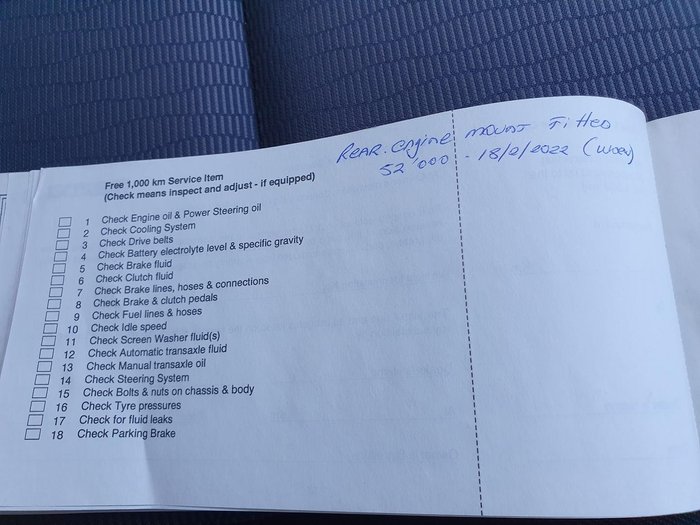 REAR. engine mount Fitted
52'000 - 18/2/2022 (WOEV)
Free 1,000 km Service Item
(Check means inspect and adjust - if equipped)
1 Check Engine oil & Power Steering oil
2 Check Cooling System
3 Check Drive belts
4 Check Battery electrolyte level & specific gravity
5 Check Brake fluid
6 Check Clutch fluid
7 Check Brake lines, hoses & connections
8 Check Brake & clutch pedals
9 Check Fuel lines & hoses
10 Check Idle speed
11 Check Screen Washer fluid(s)
12 Check Automatic transaxle fluid
13 Check Manual transaxle oil
14 Check Steering System
15 Check Bolts & nuts on chassis & body
16 Check Tyre pressures
17 Check for fluid leaks
18 Check Parking Brake